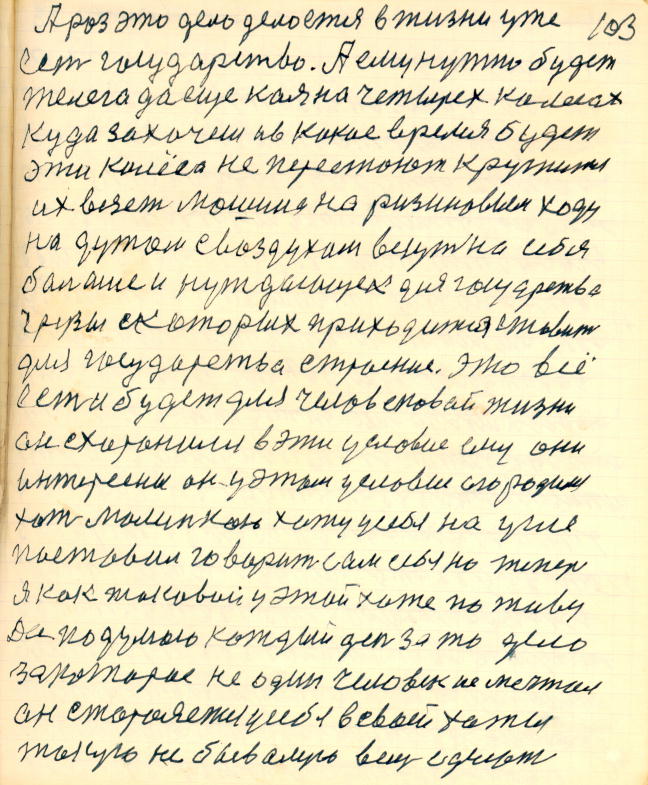 А раз это дело делается в жизни уже 103
есть государство. А ему нужно будет
телега да еще какяна четырех колесах
куда захочеш ив какое время будет
эти колёса не перестают кружится
их везет машина на ризиновым ходу
на дутом своздухам везут на себя
балшие и нуждающек для государства
грузы скоторых приходится ставит
для государства строение. Это всё
есть и будет для человековай жизни
он схаронили в эти условие ему они
интересны он у этом условие огородил
хот малинкою хату усебя на угле
поставил говорит сам себя но тепер
я как таковой у этой хате по живу
Да подумаю каждый ден за то дело
закоторое не один человек не мечтал
он старается усебя в своей хати
такую не бывалую вещ